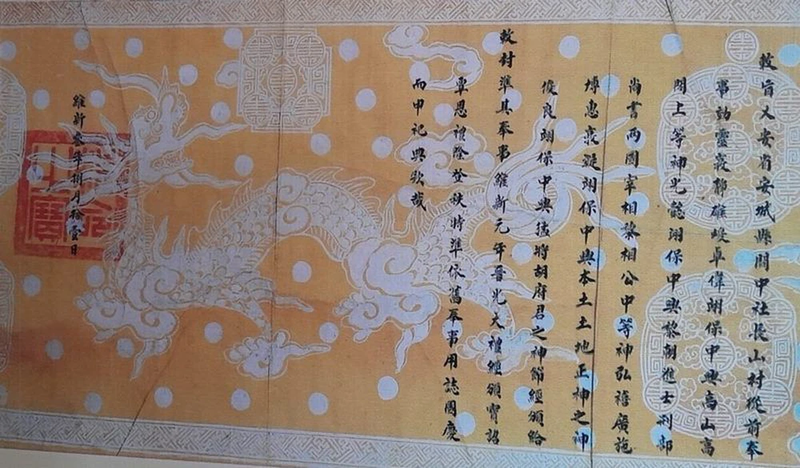 敕旨乂安省安城縣関中社長山村從前奉
事勍靈敦靜雄峻卓偉翊保中興高山高
閣上等神光懿翊保中興黎朝進士刑部
尚書兩國宰相黎相公中等神弘禧廣施
博惠衷凝翊保中興本土土地正神之神
俊良翊保中興猛將胡府君之神節經頒給
敕封準其奉事維新元年晉光大禮經頒寶詔
覃恩禮隆登秩特準依舊奉事用誌國慶
而申祀典欽哉
維新叁年捌月拾壹日
敕命之寶